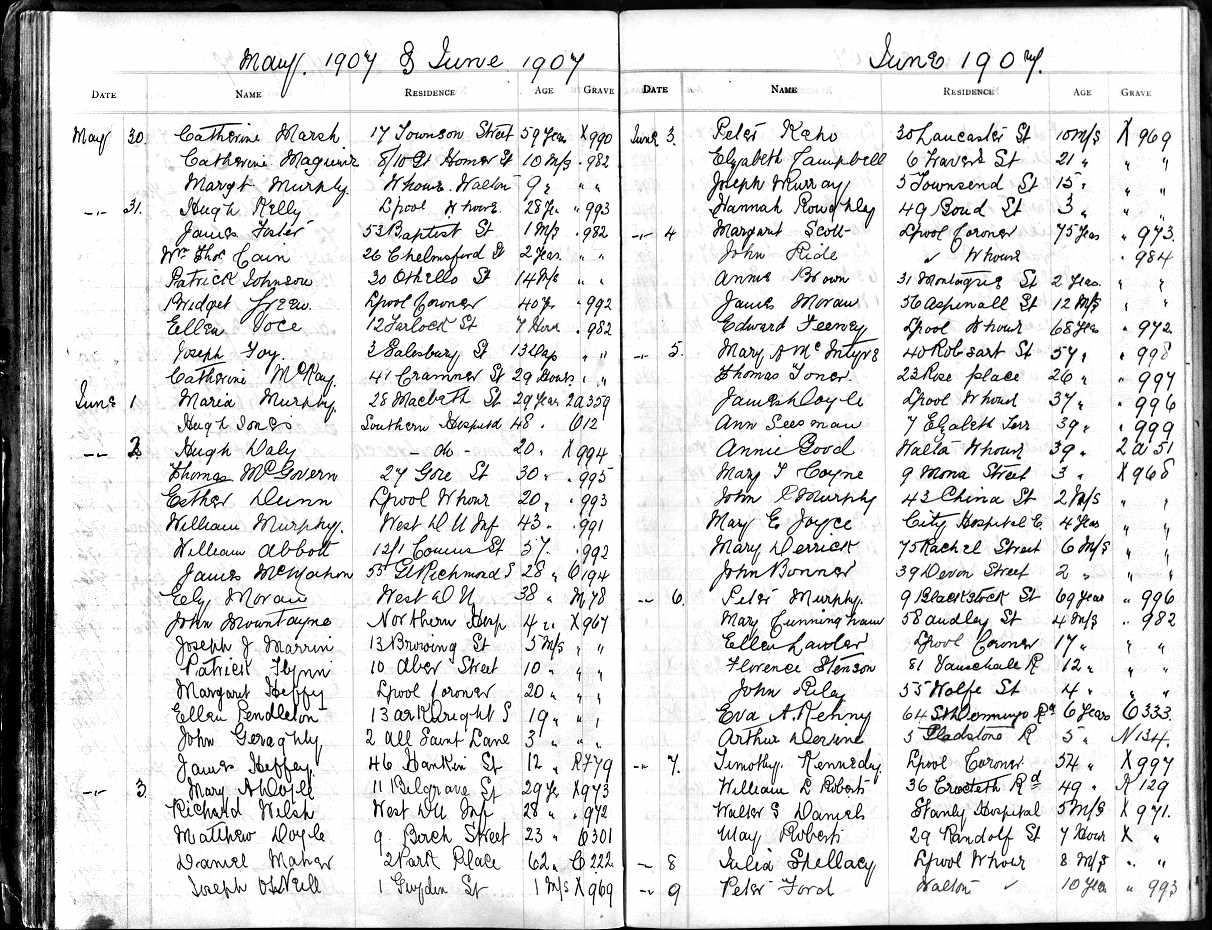 May. 1907 & June 1907
DATE NAME RESIDENCE AGE GRAVE
May 30. Catherine Marsh. 17 Townson Street 59 Years X 990
Catherine Maguire 8/10 Gt Homer St 10 M/s " 982
Margt Murphy. Whouse Walton 9 " " "
-"- 31. Hugh Kelly Lpool Whouse. 28 Yrs " 993
James Foster 53 Baptist St 1 M/s " 982
Wm Thos Cain 26 Chelmsford St 2 Years " "
Patrick Johnson 30 Othello St 14 M/s " "
Bridget Lpool Coroner 40 Yrs " 992
Ellen Voce 12 Tarlock St 7 " 982
Joseph Foy. 3 Salesbury St 13 Days " "
Catherine McKay. 41 Cranmer St 29 Hours " "
June 1 Maria Murphy. 28 Macbeth St 29 Years 2A 359
Hugh Jones Southern Hospital 48 " C 12
-"- 2. Hugh Daly - do - 20 " X 994
Thomas McGovern 27 Gore St 30 " " 995
Esther Dunn Lpool Whour 20 " " 993
William Murphy. West D U Inf 43 " " 991
William Abbott 12/1 St 57. " 992
James McMahon 55 Gt Richmond S 28 " C 194
Moran West D U 38 " M 78
John Mountayne Northern Hosp 4 " X 967
Joseph J Marrin 13 Browing St 5 M/s " "
Patrick Flynn 10 Aber Street 10 " " "
Margaret Heffy Lpool Coroner 20 " " "
Ellen Pendleton 13 Arkdright S 19 " " "
John Geraghly 2 All Saint Lane 3 " " "
James Heffey. 46 Hankin St 12 " R 479
-"- 3. Mary A Doyle 11 Bilgrave St 29 Yrs X 973
Richard Welsh West D U Inf 28 " " 972
Matthew Doyle 9 Birch Street 23 " C 301
Daniel Maher 2 Park Place 62 " C 222
Joseph O'Neill 1 St 1 M/s X 969
June 1907.
DATE NAME RESIDENCE AGE GRAVE
June 3. Peter Keho 30 Lancaster St 10 M/s X 969
Elizabeth Campbell 6 Travers St 21 " " "
Joseph Murray 5 Townsend St 15 " " "
Hannah Roughley 49 Bond St 3 " " "
-"- 4 Margaret Scott Lpool Coroner 75 Years " 973.
John Ride " Whouse " 984
Annie Brown 31 Montague St 2 Years " "
James Moran 56 Aspinall St 12 M/s " "
Edward Feeney Lpool Whour 68 Yrs " 972
-"- 5. Mary A McIntyre 40 Robsart St 57 " " 998
Thomas Toner. 23 Rose place 26 " " 997
James Doyle Lpool Whour 37 " " 996
Ann Seesman 7 Elzabeth Terr 39 " " 999
Annie Good Walto Whour 39 " 2A 51
Mary T Coyne 9 Mona Street 3 " X 968
John P Murphy 43 China St 2 M/s " "
Mary E Joyce City Hospital E. 4 Years " "
Mary Derrick 75 Rachel Street 6 M/s " "
John Bonner 39 Devon Street 2 " " "
-"- 6. Peter Murphy 9 Blackstock St 69 Years " 996
Mary Cunningham 58 Audley St 4 M/s " 982
Ellen Lawler Lpool Coroner 17 " " "
Florence Stenson 81 Vauxhall R 12 " " "
John Riley 55 Wolfe St 4 " " "
Eva A. Kenny 64 St Domingo Rd 6 Years C 333.
Arthur Devine 5 Gladstone R 5 " N 134.
-"- 7. Timothy. Kennedy Lpool Coroner 54 " X 997
William D Roberts 36 Croxteth Rd 49 " R 129
Walter S Daniels Stanly Hospital 5 M/s X 971.
May Roberts 29 Randolf St 7 Hour X "
-"- 8 Julia Shellacy Lpool Whour 8 M/s " "
-"- 9 Peter Ford Walton " 10 Years " 993